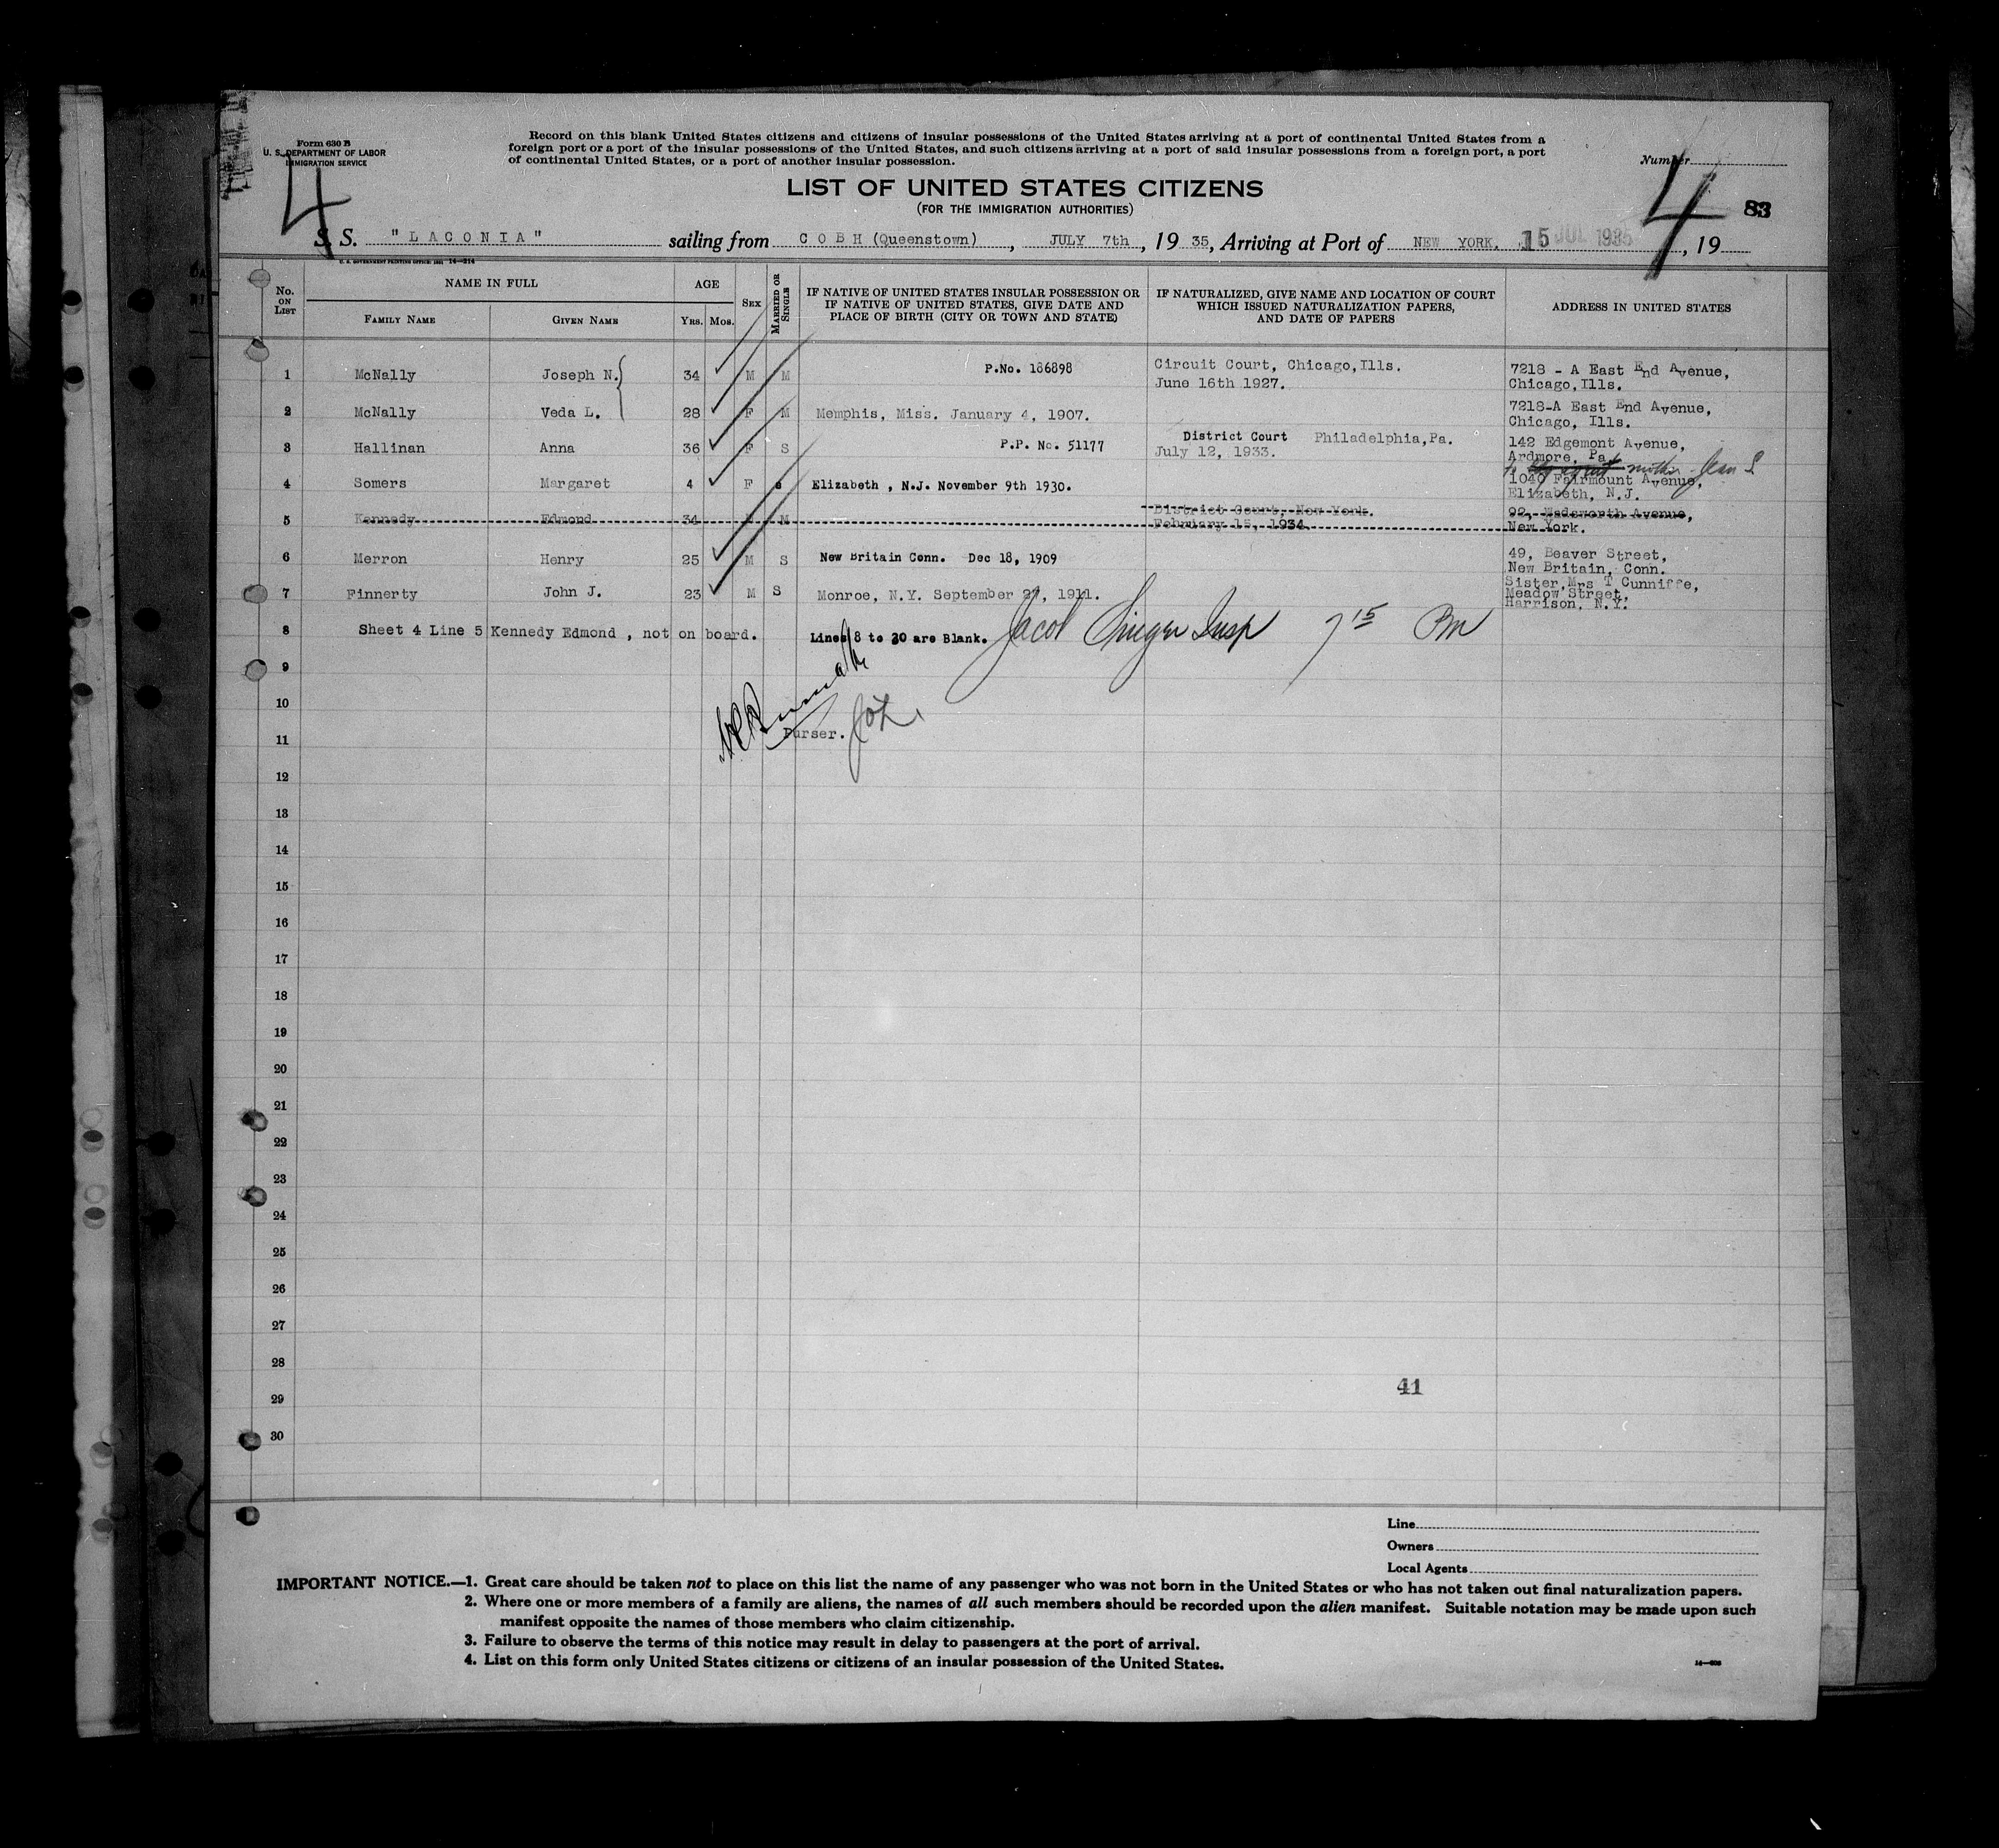 Form 630 B
U. S. DEPARTMENT OF LABOR
IMMIGRATION SERVICE
Record on this blank United States citizens and citizens of insular possessions of the United States arriving at a port of continental United States from a
foreign port or a port of the insular possessions of the United States, and such citizens arriving at a port of said insular possessions from a foreign port, a port
of continental United States, or a port of another insular possession.
Number
4
4
83
LIST OF UNITED STATES CITIZENS
(FOR THE IMMIGRATION AUTHORITIES)
S. S. "LACONIA" sailing from COBH (Queenstown), JULY 7th, 19 35, Arriving at Port of NEW YORK. 15 JUL 1935, 19
U. S. GOVERNMENT PRINTING OFFICE: 1931 14—214
No. ON LIST
NAME IN FULL
FAMILY NAME
GIVEN NAME
AGE
YRS. MOS.
SEX
MARRIED OR SINGLE
IF NATIVE OF UNITED STATES INSULAR POSSESSION OR
IF NATIVE OF UNITED STATES, GIVE DATE AND
PLACE OF BIRTH (CITY OR TOWN AND STATE)
IF NATURALIZED, GIVE NAME AND LOCATION OF COURT
WHICH ISSUED NATURALIZATION PAPERS,
AND DATE OF PAPERS
ADDRESS IN UNITED STATES
1 McNally Joseph N. 34 M M P.No. 186898 Circuit Court, Chicago,Ills.
June 16th 1927.
7218 - A East End Avenue,
Chicago,Ills.
2 McNally Veda L. 28 F M Memphis, Miss. January 4, 1907.
7218-A East End Avenue,
Chicago, Ills.
3 Hallinan Anna 36 F S P.P. No. 51177 District Court Philadelphia,Pa.
July 12, 1933.
142 Edgemont Avenue,
Ardmore, Pa.
mother Jean S
4 Somers Margaret 4 F s Elizabeth , N.J. November 9th 1930.
1040 Fairmount Avenue,
Elizabeth, N.J.
5 Kennedy Edmond 34 M M District Court, New York.
February 15, 1934
92, Wadsworth Avenue,
New York.
6 Merron Henry 25 M S New Britain Conn. Dec 18, 1909
49, Beaver Street,
New Britain, Conn.
7 Finnerty John J. 23 M S Monroe, N.Y. September 27, 1911.
Sister,Mrs T Cunniffe,
Meadow Street,
Harrison, N.Y.
8 Sheet 4 Line 5 Kennedy Edmond , not on board. Lines 8 to 30 are Blank. Jacob Insp 7 15 Pm
9
10
11 Purser.
12
13
14
15
16
17
18
19
20
21
22
23
24
25
26
27
28
41
29
30
Line
Owners
Local Agents
IMPORTANT NOTICE.—1. Great care should be taken not to place on this list the name of any passenger who was not born in the United States or who has not taken out final naturalization papers.
2. Where one or more members of a family are aliens, the names of all such members should be recorded upon the alien manifest. Suitable notation may be made upon such
manifest opposite the names of those members who claim citizenship.
3. Failure to observe the terms of this notice may result in delay to passengers at the port of arrival.
4. List on this form only United States citizens or citizens of an insular possession of the United States.